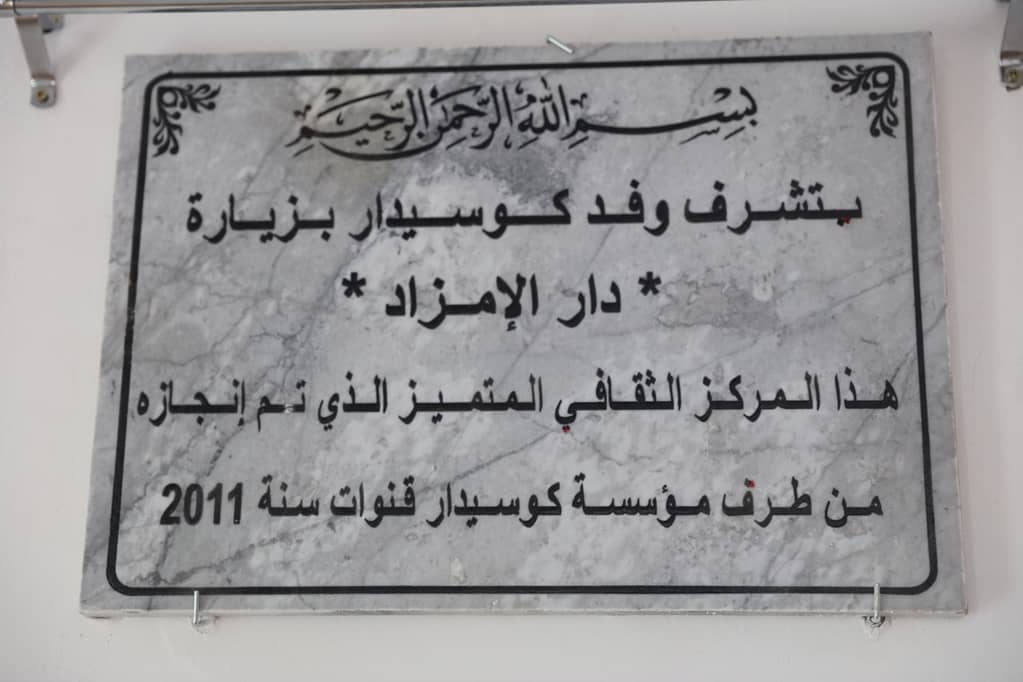 بسم الله الرحمن الرحيم
يتشرف وفد كوسيدار بزيارة
* دار الإمزاد *
هذا المركز الثقافي المتميز الذي تم إنجازه
من طرف مؤسسة كوسيدار قنوات سنة 2011